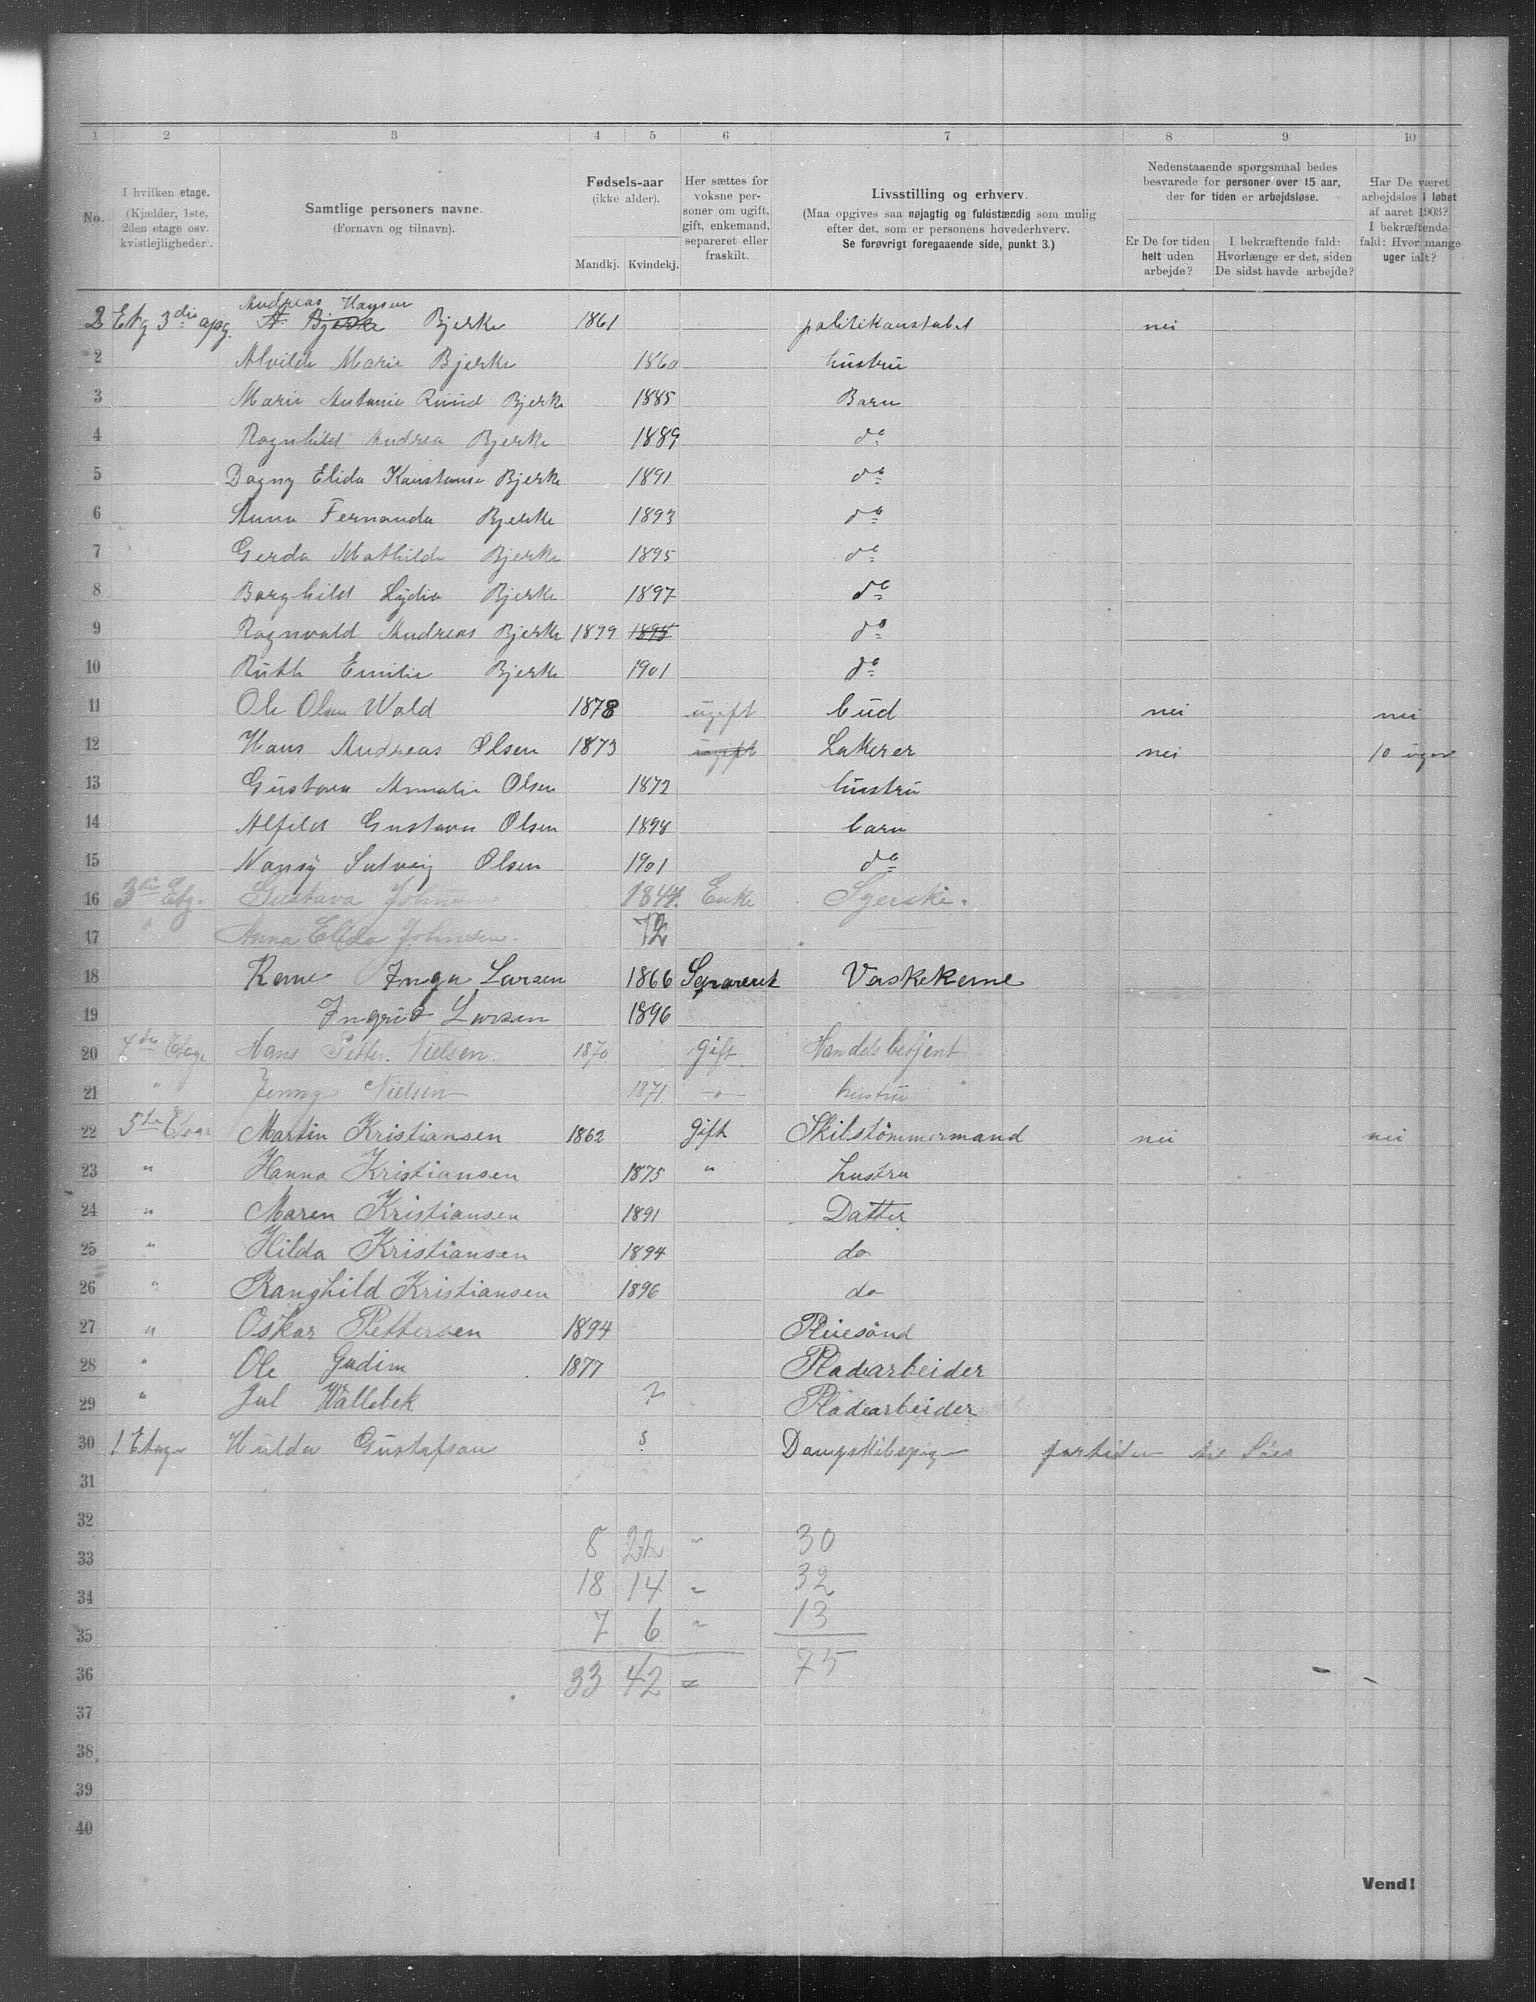 1 2 3 4 5 6 7 8 9 10
No.
I hvilken etage.
(Kjælder, 1ste,
2den etage osv.
kvistlejligheder.
Samtlige personers navne.
(Fornavn og tilnavn).
Fødsels-aar
(ikke alder).
Mandkj. Kvindekj.
Her sættes for
voksne per-
soner om ugift,
gift, enkemand,
separeret eller
fraskilt.
Livsstilling og erhverv.
(Maa opgives saa nøjagtig og fuldstændig som mulig
efter det, som er personens hovederhverv.
Se forøvrigt foregaaende side, punkt 3.)
Nedenstaaende spørgsmaal bedes
besvarede for personer over 15 aar,
der for tiden er arbejdsløse.
Er De for tiden
helt uden
arbejde?
I bekræftende fald:
Hvorlænge er det, siden
De sidst havde arbejde?
Har De været
arbejdsløs i løbet
af aaret 1903?
I bekræftende
fald: Hver mange
uger ialt?
Andreas Hansen
2 Etg 3die apg. A. Bjerke Bjerke 1861 politikonstabel nei
2 Alvilde Marie Bjerke 1860 hustru
3 Marie Antonie Ruud Bjerke 1885 Barn
4 Ragnhild Andrea Bjerke 1889 do
5 Dagny Elida Konstanse Bjerke 1891 do
6 Anna Fernanda Bjerke 1893 do
7 Gerda Mathilde Bjerke 1895 do
8 Borghild Lydia Bjerke 1897 do
9 Ragnvald Andreas Bjerke 1899 1898 do
10 Ruth Emilie Bjerke 1901 do
11 Ole Olsen Wold 1878 ugift bud nei nei
12 Hans Andreas Olsen 1873 ugift Lakerer nei 10 uger
13 Gustava Annalie Olsen 1872 hustru
14 Alfild Gustava Olsen 1898 barn
15 Nansy Solveig Olsen 1901 do
16 3die Etg. Gustava Johnsen 1844 Enke Syerske.
17 " Anna Elida Johnsen. 72
18 Kone Inga Larsen 1866 Separeret Vaskekone
19 Ingrid Larsen 1896
20 4de Etage Hans Petter Nielsen. 1870 gift Handelsbetjent
21 " Jenny Nielsen 1871 hustru
22 5te Etage Martin Kristiansen 1862 gift Skibstömmermand nei nei
23 " Hanna Kristiansen 1875 " hustru
24 " Maren Kristiansen 1891 Datter
25 " Hilda Kristiansen 1894 do
26 " Ranghild Kristiansen 1896 do
27 " Oskar Pettersen 1894 Pleiesönd
28 " Ole Gudim 1877 Pladearbeider
29 " Jul Wallebek ? Pladearbeider
30 1 Etage Hulda Gustafson Dampskibspige
31
32
33 8 22 " 30
34 18 14 " 32
35 7 6 " 13
36 33 42 = 75
37
38
39
40
Vend!